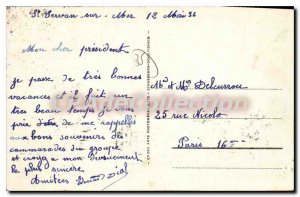 St Servan sur Mer 12 Mai 31
Mon cher président
je passe de très bonnes
vacances et il fait un
très beau temps je vous
prie d'être de me rappeler
aux bons souvenirs des
camarades du groupe
et croyez a mon dévouement
le plus sincère
Amitiés
Mr & Me
25 rue Nicolo
Paris 16